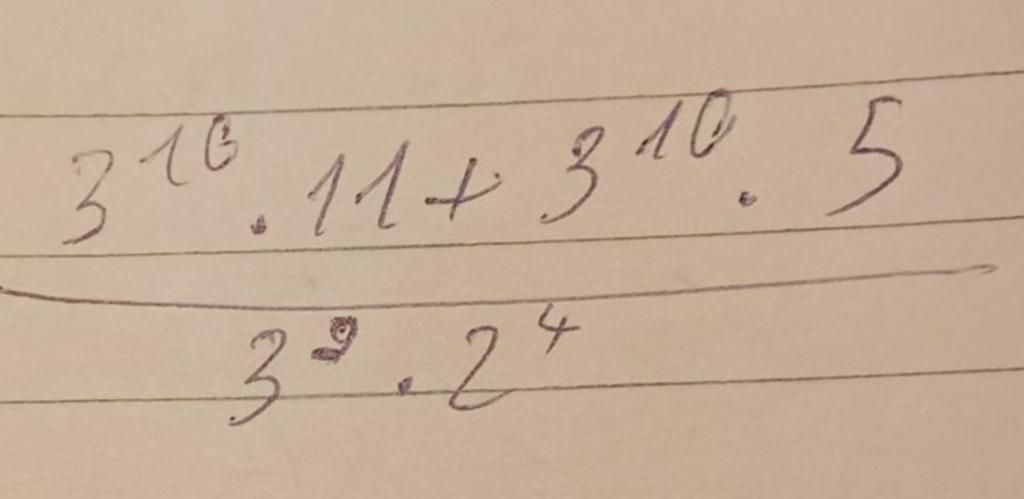 3¹⁰ . 11 + 3¹⁰ . 5
3⁹ . 2⁴